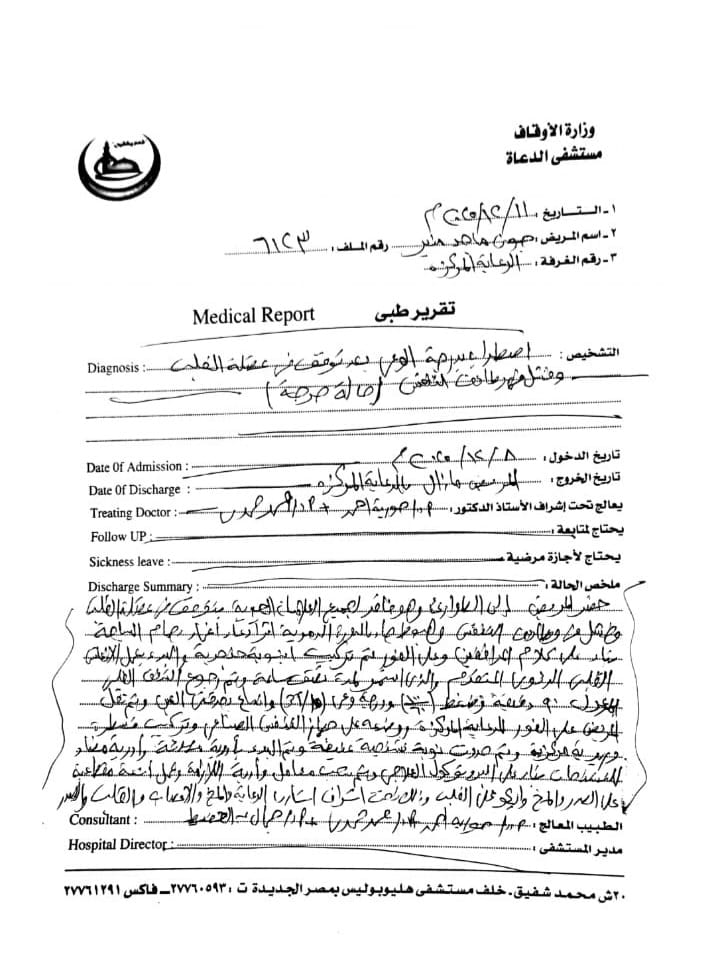 وزارة الأوقاف
مستشفى الدعاة
١- التاريخ، ٢٠٢٥/١٢/١١م
٢- اسم المريض، جون ماجد منير رقم الملف، ٦١٢٣
٣- رقم الغرفة، الرعاية المركزة
Medical Report تقرير طبى
Diagnosis : التشخيص : اضطراب بدرجة الوعى بعد توقف فى عضلة القلب
وفشل فى وظائف التنفس (حالة حرجة)
Date Of Admission : تاريخ الدخول، ٢٠٢٥/١٢/٨م
Date Of Discharge : تاريخ الخروج، المريض مازال بالرعاية المركزة
Treating Doctor : يعالج تحت إشراف الأستاذ الدكتور،
Follow UP : يحتاج لمتابعة،
Sickness leave : يحتاج لأجازة مرضية
Discharge Summary : ملخص الحالة،
حضر المريض إلى الطوارئ وهو فاقد لجميع العلامات الحيوية متوقف فى عضلة القلب
وفشل فى وظائف التنفس وهبوط حاد بالدورة الدموية
بناء على كلام المرافقين وعلى الفور تم تركيب أنبوبة حنجرية والبدء بعمل الإنعاش
القلبى الرئوى المتقدم والذى استمر لمدة نصف ساعة وتم رجوع النبض القلبى
بمعدل ٩٠ دقيقة وضغط ودرجة وعى واتساع بحدقتى العين وتم نقل
المريض على الفور للرعاية المركزة ووضعه على جهاز التنفس الصناعى وتركيب قسطرة
وريدية مركزية وتم حدوث نوبة تشنجية عنيفة وتم البدء أدوية مهدئة وأدوية مضاد
للتشنجات بناء على البروتوكول العلاجى وتم سحب معامل وأدوية اللازمة وعمل أشعة مقطعية
على الصدر والمخ وايكو على القلب وذلك تحت اشراف استشارى الرعاية والمخ والاعصاب والقلب والصدر
Consultant : الطبيب المعالج،
Hospital Director : مدير المستشفى،
٢٠ش محمد شفيق. خلف مستشفى هليوبوليس بمصر الجديدة ت : ٢٧٧٦٠٥٩٣ـ فاكس ٢٧٧٦١٢٩١